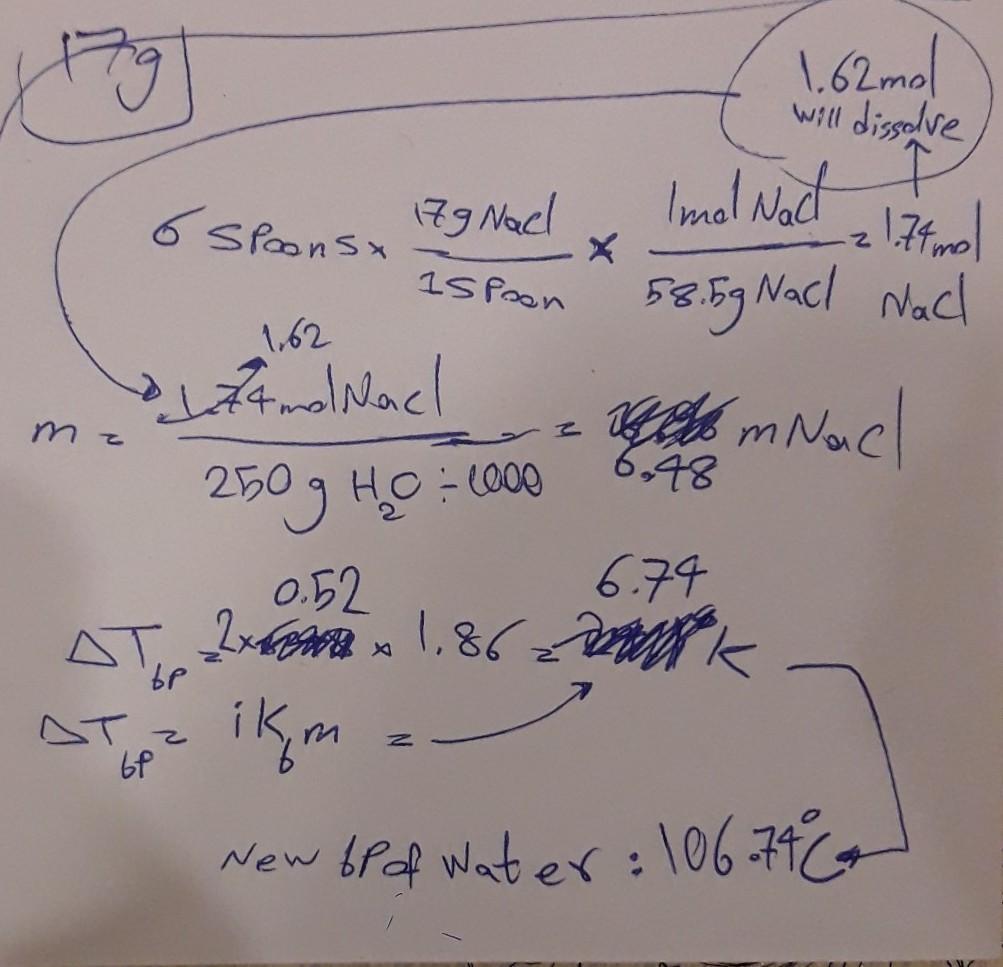 17g
1.62mol
will dissolve
6 Spoons x 17g NaCl / 1 Spoon x 1mol NaCl / 58.5g NaCl = 1.74mol NaCl
1.62
m = 1.74 mol NaCl / 250g H₂O ÷ 1000 = 6.48 m NaCl
0.52 6.74
ΔT_bp = 2 x x 1.86 = K
ΔT_bp = i K_b m =
New bp of water : 106.74°C